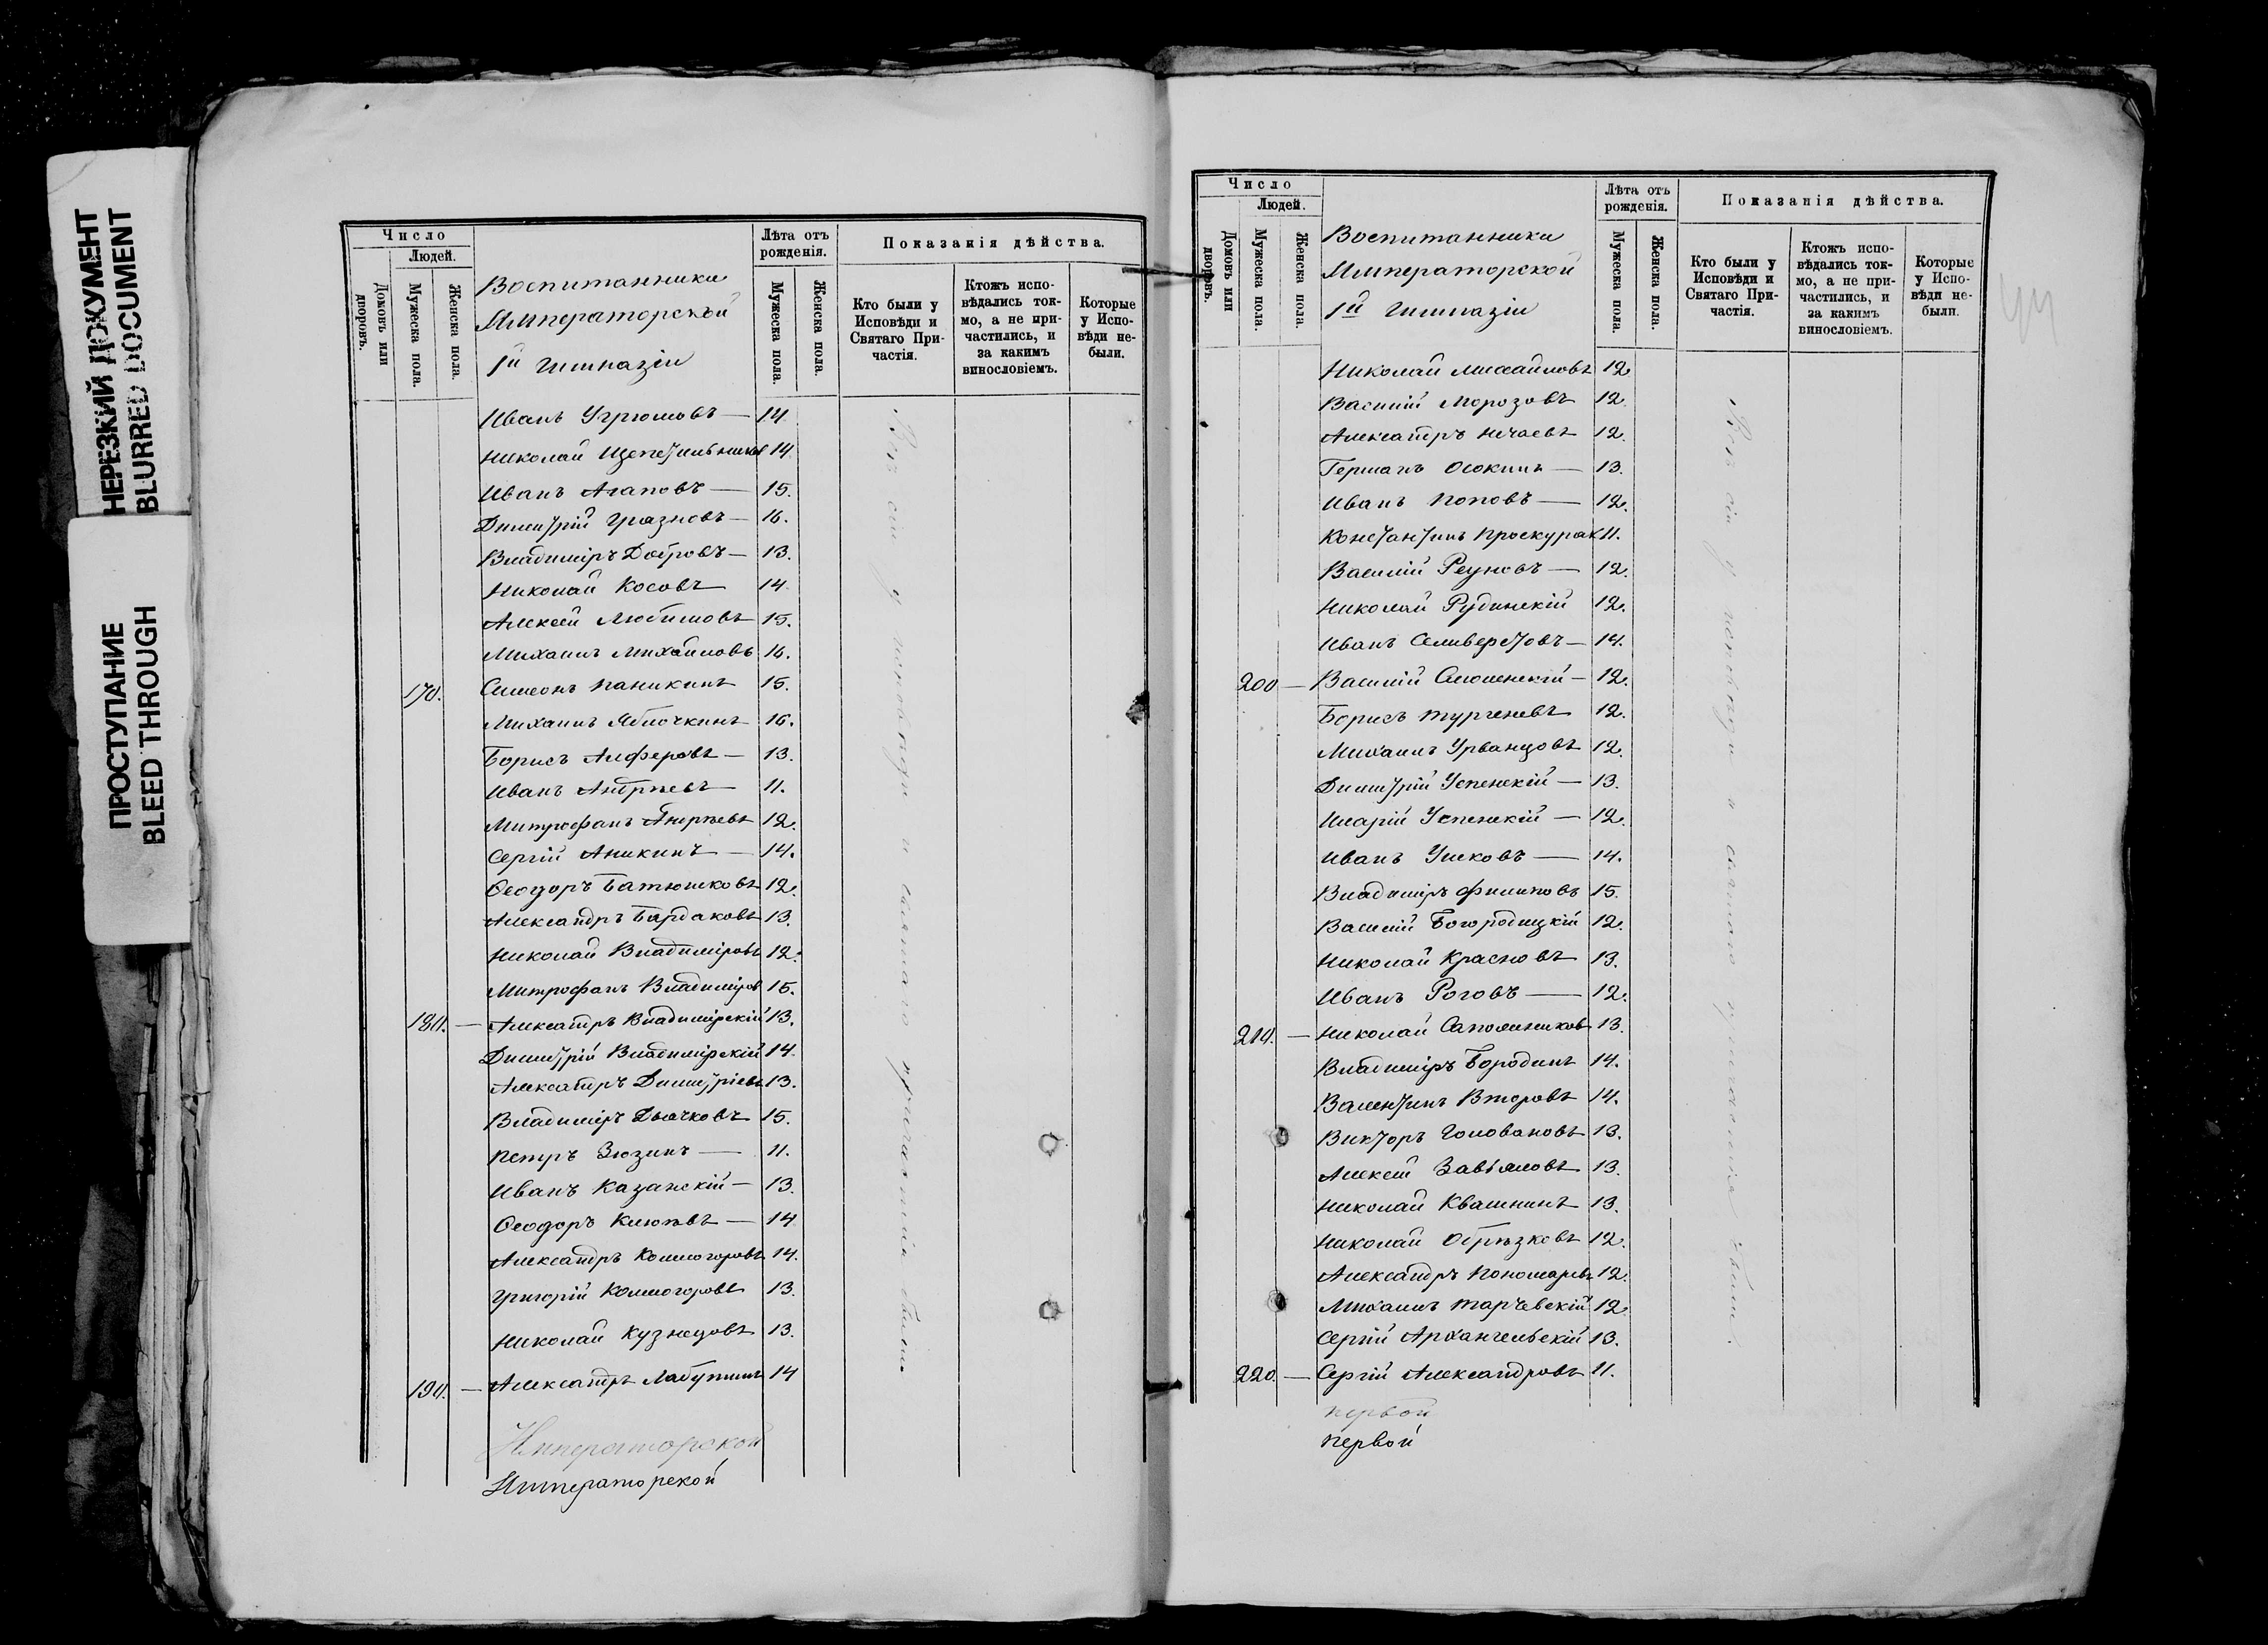 НЕРЕЗКИЙ ДОКУМЕНТ
BLURRED DOCUMENT
ПРОСТУПАНИЕ
BLEED THROUGH
Число
Людей.
Домовъ или дворовъ.
Мужеска пола.
Женска пола.
Воспитанники
Императорской
1й Гимназіи
Лѣта отъ рожденія.
Мужеска пола.
Женска пола.
Показанія дѣйства.
Кто были у Исповѣди и Святаго Причастія.
Ктожъ исповѣдались токмо, а не причастились, и за какимъ винословіемъ.
Которые у Исповѣди небыли.
Иванъ Угрюмовъ — 14.
Николай Щепетильников 14.
Иванъ Агаповъ — 15.
Димитрій Грязновъ — 16.
Владиміръ Добровъ — 13.
Николай Косовъ 14.
Алексѣй Любимовъ 15.
Михаилъ Михайловъ 16.
170. Симеонъ Паникинъ 15.
Михаилъ Яблочкинъ 16.
Борисъ Алферовъ — 13.
Иванъ Андреевъ 11.
Митрофанъ 12.
Сергій Аникинъ — 14.
Ѳеодоръ Батюшковъ 12.
Александръ Бардаковъ 13.
Николай Владиміровъ 12.
Митрофанъ Владиміров 15.
180. — Александръ Владимірскій 13.
Димитрій Владимірскій 14.
Александръ Димитріевъ 13.
Владиміръ Дьячковъ 15.
Петръ Зюзинъ — 11.
Иванъ Казанскій — 13.
Ѳеодоръ Клюевъ — 14
Александръ Колмогоровъ 14.
Григорій Колмогоровъ 13.
Николай Кузнецовъ 13.
190. — Александръ Лабутинъ 14
Всѣ сіи у исповѣди и святаго причастія были
Императорской
Императорской
Число
Людей.
Домовъ или дворовъ.
Мужеска пола.
Женска пола.
Воспитанники
Императорской
1й Гимназіи
Лѣта отъ рожденія.
Мужеска пола.
Женска пола.
Показанія дѣйства.
Кто были у Исповѣди и Святаго Причастія.
Ктожъ исповѣдались токмо, а не причастились, и за какимъ винословіемъ.
Которые у Исповѣди небыли.
Николай Михайловъ 12
Василій Морозовъ 12.
Александръ Нечаевъ 12.
Германъ Осокинъ — 13.
Иванъ Поповъ — 12.
Константинъ Проскуряк 11.
Василій Реуновъ — 12.
Николай Рудинскій 12.
Иванъ Селиверстовъ — 14.
200 — Василій — 12.
Борисъ Тургеневъ 12.
Михаилъ Урванцовъ 12.
Димитрій Успенскій — 13.
Иларій Успенскій — 12.
Иванъ Ушковъ — 14.
Владиміръ Филиповъ 15.
Василій Богородицкій 12.
Николай Красновъ 13.
Иванъ Роговъ — 12.
210. — Николай Сапожников 13.
Владиміръ Бородинъ 14.
Валентинъ Второвъ 14.
Викторъ Головановъ 13.
Алексѣй Завьяловъ 13.
Николай Квашнинъ 13.
Николай Обрѣзковъ 12.
Александръ Пономаревъ 12.
Михаилъ Тарчевскій 12
Сергій Архангельскій 13.
220. — Сергій Александровъ 11.
Всѣ сіи у исповѣди и святаго причастія были.
первой
первой